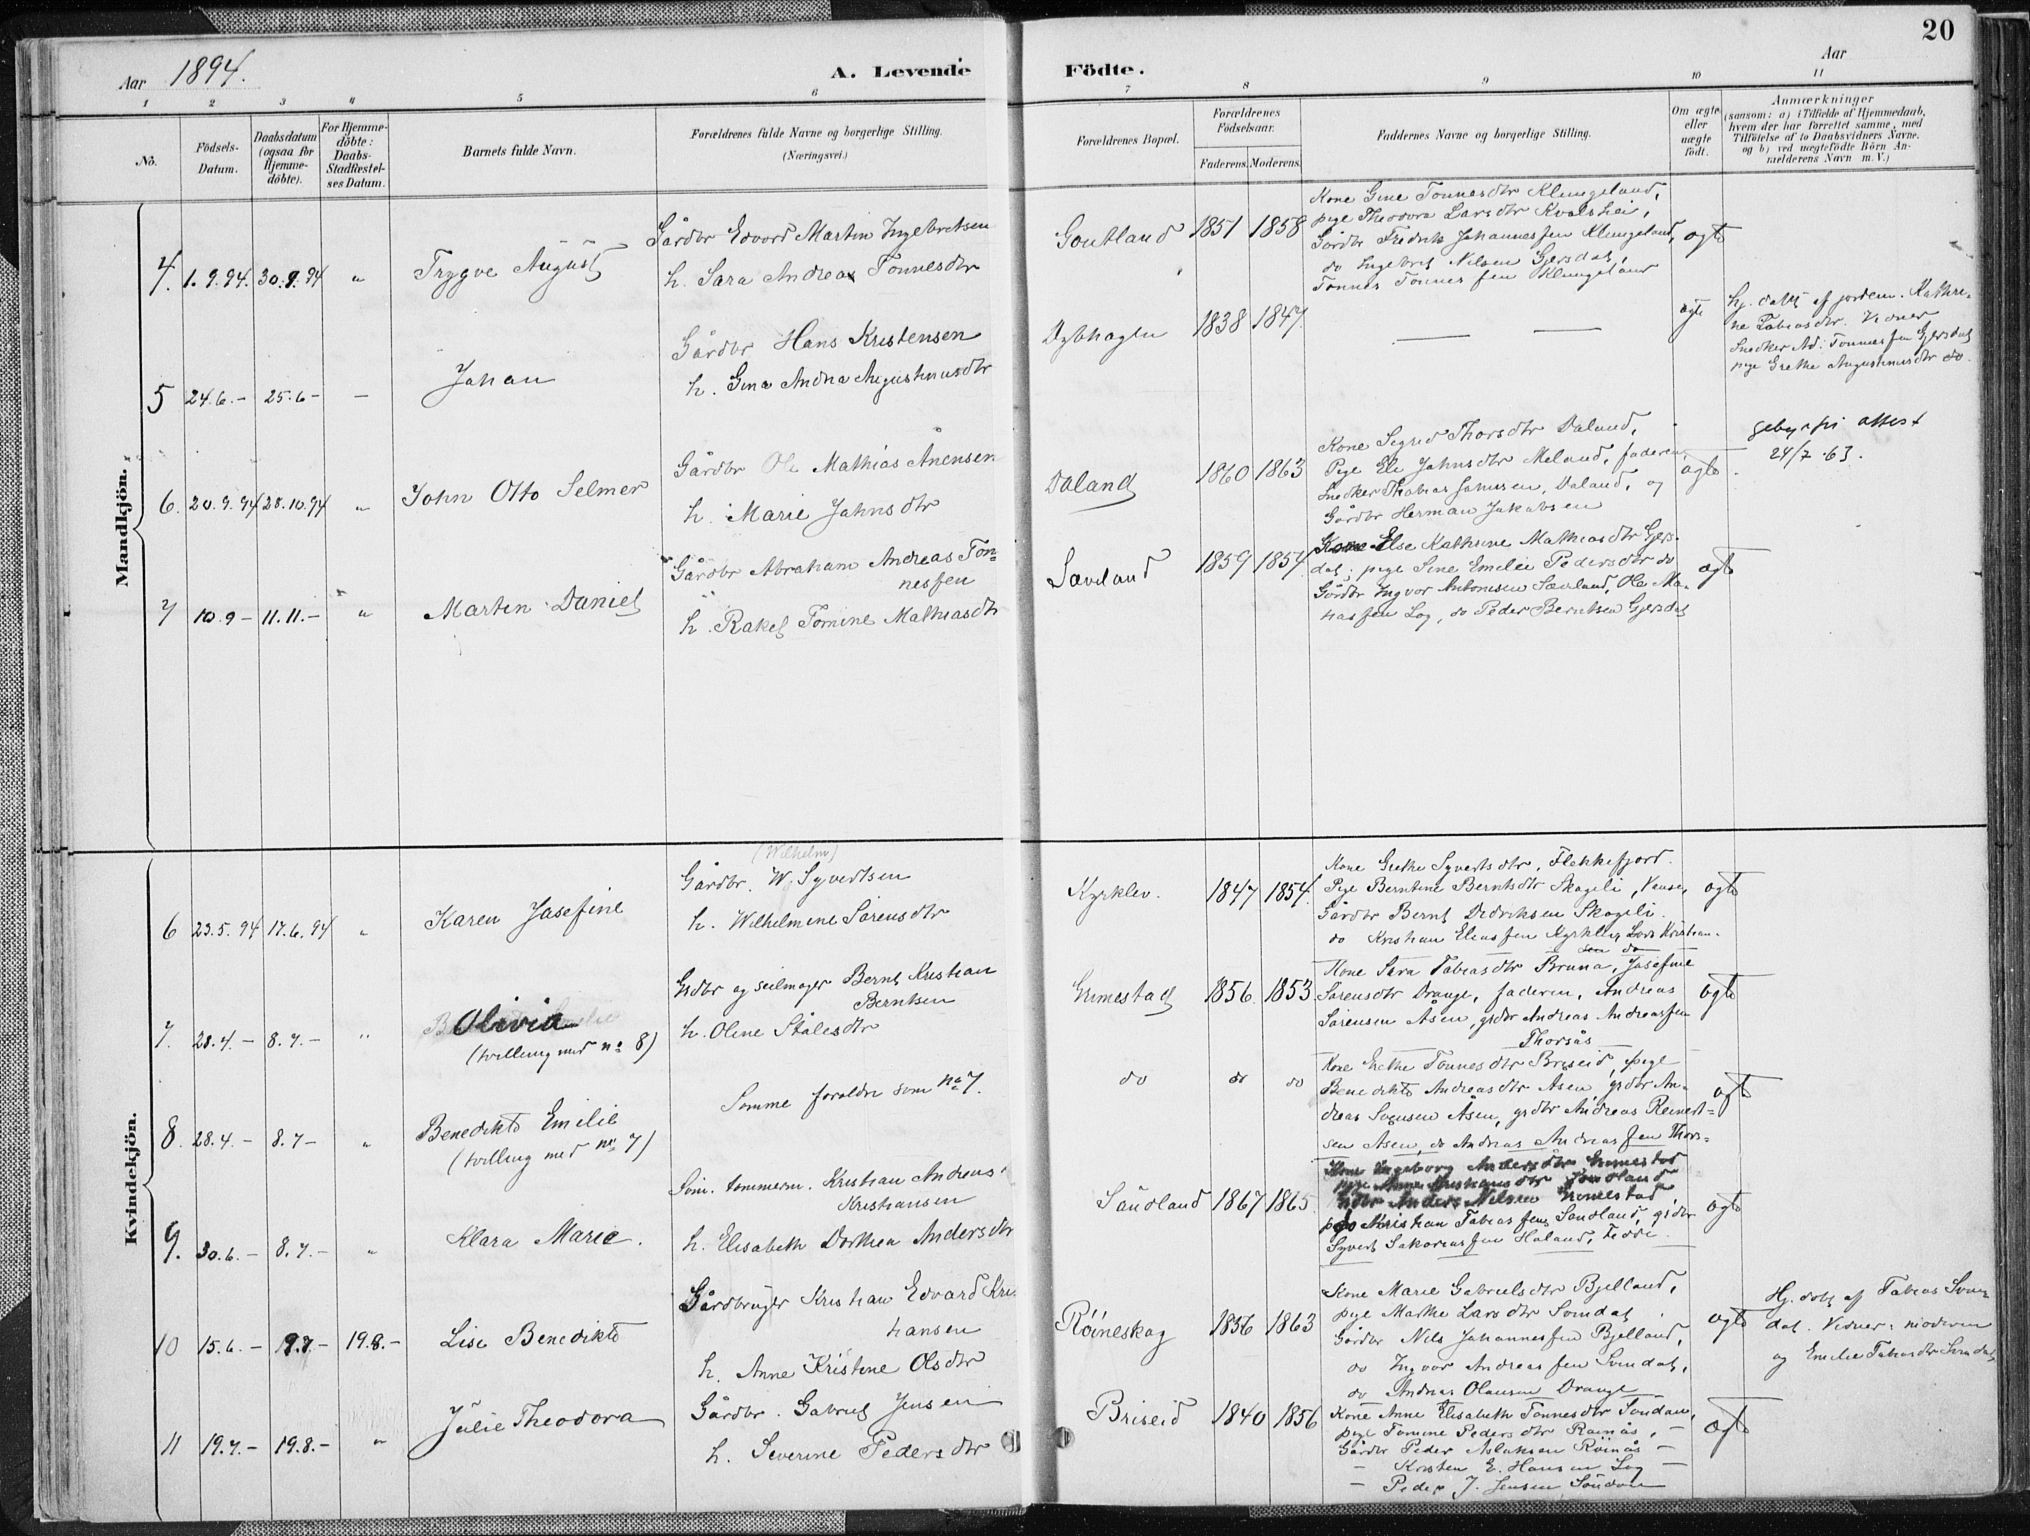 20
Aar 1894.
A. Levende Födte.
Aar
1 2 3 4 5 6 7 8 9 10 11
No.
Födsels-Datum.
Daabsdatum (ogsaa for Hjemme-döbte).
For Hjemme-döbte: Daabs-Stadfestel-ses Datum.
Barnets fulde Navn.
Forældrenes fulde Navne og borgerlige Stilling. (Næringsvei.)
Forældrenes Bopæl.
Forældrenes Födselsaar.
Faderens. Moderens.
Faddernes Navne og borgerlige Stilling.
Om ægte eller uægte födt.
Anmærkninger
(saasom: a) i Tilfælde af Hjemmedaab,
hvem der har forrettet samme, med
Tilföielse af to Daabsvidners Navne.
og b) ved uægtefödte Börn An-
mælderens Navn m. V.)
Mandkjön.
4. 1.9.94. 30.9.94 " Trygve August
Gårdbr Edvard Martin Ingebretsen
h. Sara Andrea Tønnesdtr
Goutland 1851 1858
Kone Gine Tonnesdtr Klungeland,
pige Theodora Larsdtr Kvalshei,
Gårdbr Fredrik Johannesfen Klungeland,
do Ingebret Nilsen Gjersdal,
Tonnes Tonnesfen Klungeland
ægte
5 24.6.- 25.6- - Johan
Gårdbr Hans Kristensen
h. Gina Andrea Augustinusdtr
Dybhagen 1838 1847
ægte
hj. døbt af jordem. Kathri-
ne Tobiasdtr. Vidner
Snedker Ad. Tonnesfen Gjersdal
pige Grethe Augustinusdtr do.
6. 20.9.94 28.10.94 " John Otto Selmer
Gårdbr Ole Mathias Ånensen
h. Marie Johnsdtr
Daland 1860 1863
Kone Sigred Thorsdtr Daland,
Pige Eli Johnsdtr Meland, faderen
Snedker Thobias Johnsen, Daland, og
Gårdbr Herman Jakobsen
ægte
attest
24/7 63.
7 10.9- 11.11.- " Martin Daniel
Gårdbr Abraham Andreas Ton=
nessen
h. Rakel Tomine Mathiasdtr
Sæveland 1859 1854
Kone Else Kathrine Mathiasdtr Gjers-
dal, pige Sine Emilie Pedersdtr do
Gårdbr Ingvor Antonisen Sævland, Ole Ma-
hasfen Log, do Peder Berntsen Gjersdal
ægte
Kvindekjön.
6 23.5.94 17.6.94 " Karen Josefine
(Wilhelm)
Gårdbr. W. Syvertsen
h. Wilhelmine Sørensdtr
Kyrklev. 1847 1854.
Kone Grethe Syvertsdtr, Flekkefjord.
Pige Berntine Berntsdtr Skageli, Vanse,
Gårdbr Bernt Didriksen Skageli.
do Kristian Eliasfen Kyrklev, Lars Kristian-
sen do
ægte
7. 28.4.- 8.7.- " Olivia
(tvilling med no 8)
Grdbr og seilmager Bernt Kristian
Berntsen
h. Oline Stålesdtr
Grimestad 1856. 1853
Kone Sara Tobiasdtr Bruna, Josefine
Sørensdtr Drange, faderen, Andreas
Sørensen Åsen, grdbr Andreas Andreasfen
Thorsås
ægte
8. 28.4.- 8.7- " Benedikte Emilie
(tvilling med no 7)
Samme forældre som no 7.
do do do
Kone Grethe Tonnesdtr Briseid, pige
Benedikte Andreasdtr Åsen, grdbr An-
dreas Sørensen Åsen, grdbr Andreas Reinert=
sen Åsen, do Andreas Andreasfen Thors=
ægte
9. 30.6.- 8.7.- " Klara Marie.
Søm. tømmerm. Kristian Andreas
Kristiansen
h. Elisabeth Dorthea Andersdtr
Sandland 1867 1865
Kone Ingeborg Andersdtr Grimestad
pige Anne Kristiansdtr Sandland
Grdbr Anders Nilsen Grimestad
do Kristian Tobiasfen Sandland, grdbr
Syvert Sakariasfen Haland, Fede.
ægte
10 15.6.- 19.7- 19.8.- Lise Benedikte
Gårdbruger Kristian Edvard Kri-
stiansen
h. Anne Kristine Olsdtr
Röineskag 1856 1863
Kone Marie Gabrielsdtr Bjelland,
pige Marthe Larsdtr Svindal
Gårdbr Nils Johannesfen Bjelland,
do Ingvor Andreasfen Svindal,
do Andreas Olausen Drange
ægte
Hj. døbt af Tobias Svin-
dal. Vidner: moderen
og Emelie Tobiasdtr Svindal
11 19.7.- 19.8.- " Julie Theodora
Gårdbr. Gabriel Jensen
h. Severine Pedersdtr
Briseid 1840 1856
Kone Anne Elisabeth Tonnesdtr Soudan,
pige Tomine Pedersdtr Roinås, -
Gårdbr Peder Aslaksen Röinås -
- Kristen E. Hansen Log -
- Peder J. Jensen Soudan
ægte